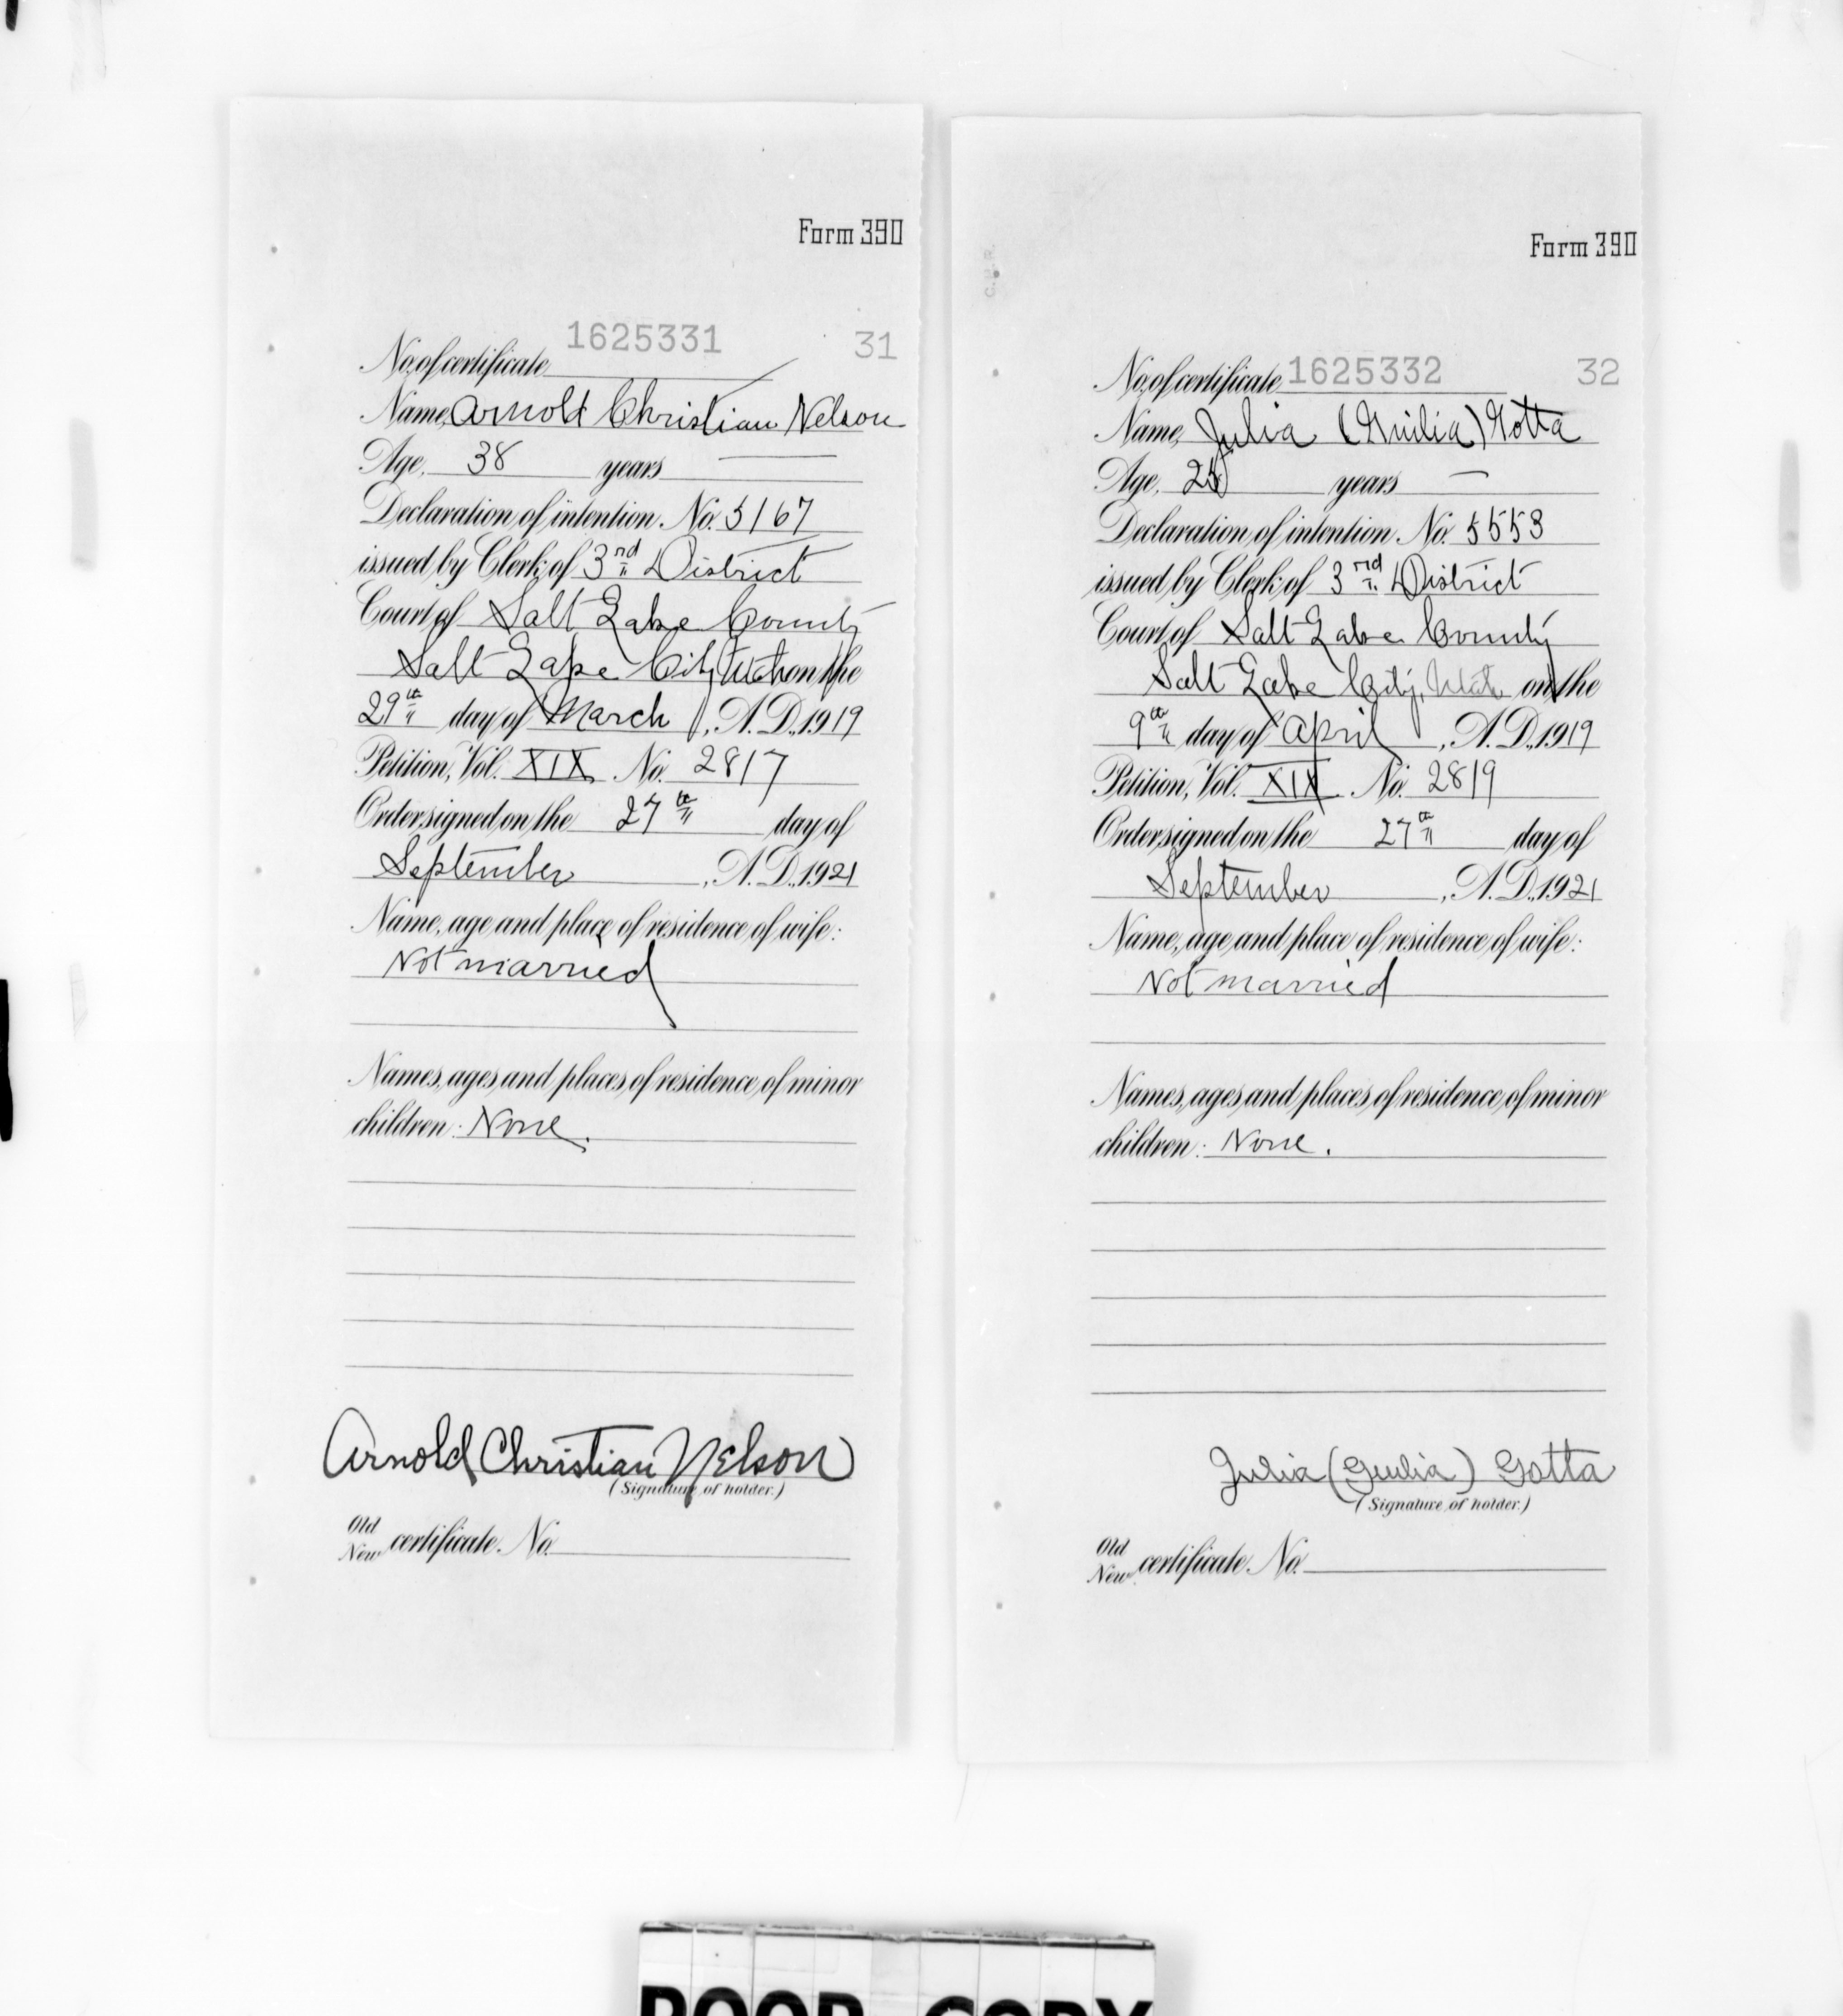 Form 390
No. of certificate 1625331 31
Name, Arnold Christian Nelson
Age, 38 years
Declaration of intention No. 5167
issued by Clerk of 3nd District
Court of Salt Lake County
Salt Lake City Utah on the
29th day of March, A.D. 1919
Petition, Vol. XIX No. 2817
Order signed on the 27th day of
September, A.D. 1921
Name, age and place of residence of wife:
Not married
Names, ages and places of residence of minor
children: None.
Arnold Christian Nelson
(Signature of holder.)
Old
New certificate No.
C.H.R.
Form 390
No. of certificate 1625332 32
Name, Julia (Guilia) Gotta
Age, years
Declaration of intention No. 5553
issued by Clerk of 3rd District
Court of Salt Lake County
Salt Lake City, Utah on the
9th day of April, A.D. 1919
Petition, Vol. XIX No. 2819
Order signed on the 27th day of
September, A.D. 1921
Name, age and place of residence of wife:
Not married
Names, ages and places of residence of minor
children: None.
Julia (Giulia) Gotta
(Signature of holder.)
Old
New certificate No.
POOR COPY